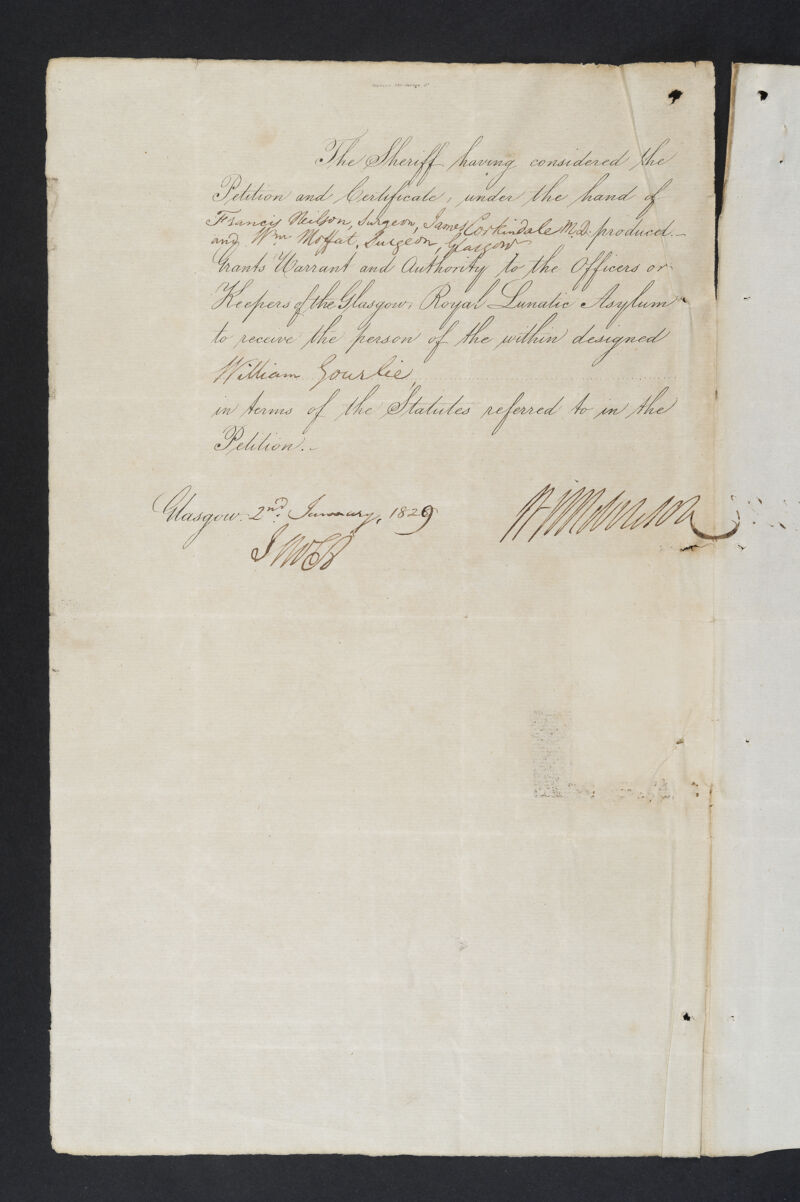 The Sheriff having considered the
Petition and Certificate, under the hand of
Francis Neilson, Surgeon, James Corkindale M.D. produced.
and Wm Moffat, Surgeon, Glasgow
Grants Warrant and Authority to the Officers or
Keepers of the Glasgow Royal Lunatic Asylum
to receive the person of the within designed
William Gourlie,
in terms of the Statutes referred to in the
Petition.
Glasgow 2nd January, 1829